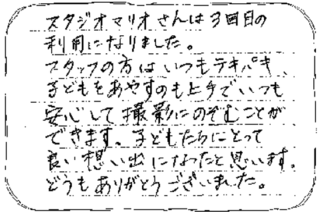 スタジオマリオさんは3回目の
利用になりました。
スタッフの方はいつもテキパキ、
子どもをあやすのも上手でいつも
安心して撮影にのぞむことが
できます。子どもたちにとって
良い想い出になったと思います。
どうもありがとうございました。